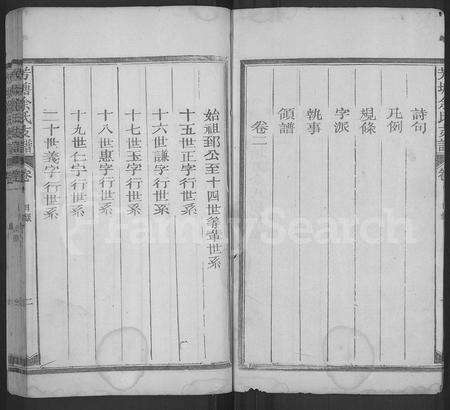 詩句
凡例
規條
字派
執事
領譜
卷一
始祖郅公至十四世肇章世系
十五世正字行世系
十六世謙字行世系
十七世玉字行世系
十八世惠字行世系
十九世仁字行世系
二十世義字行世系
余氏支譜
卷
目錄
FamilySearch